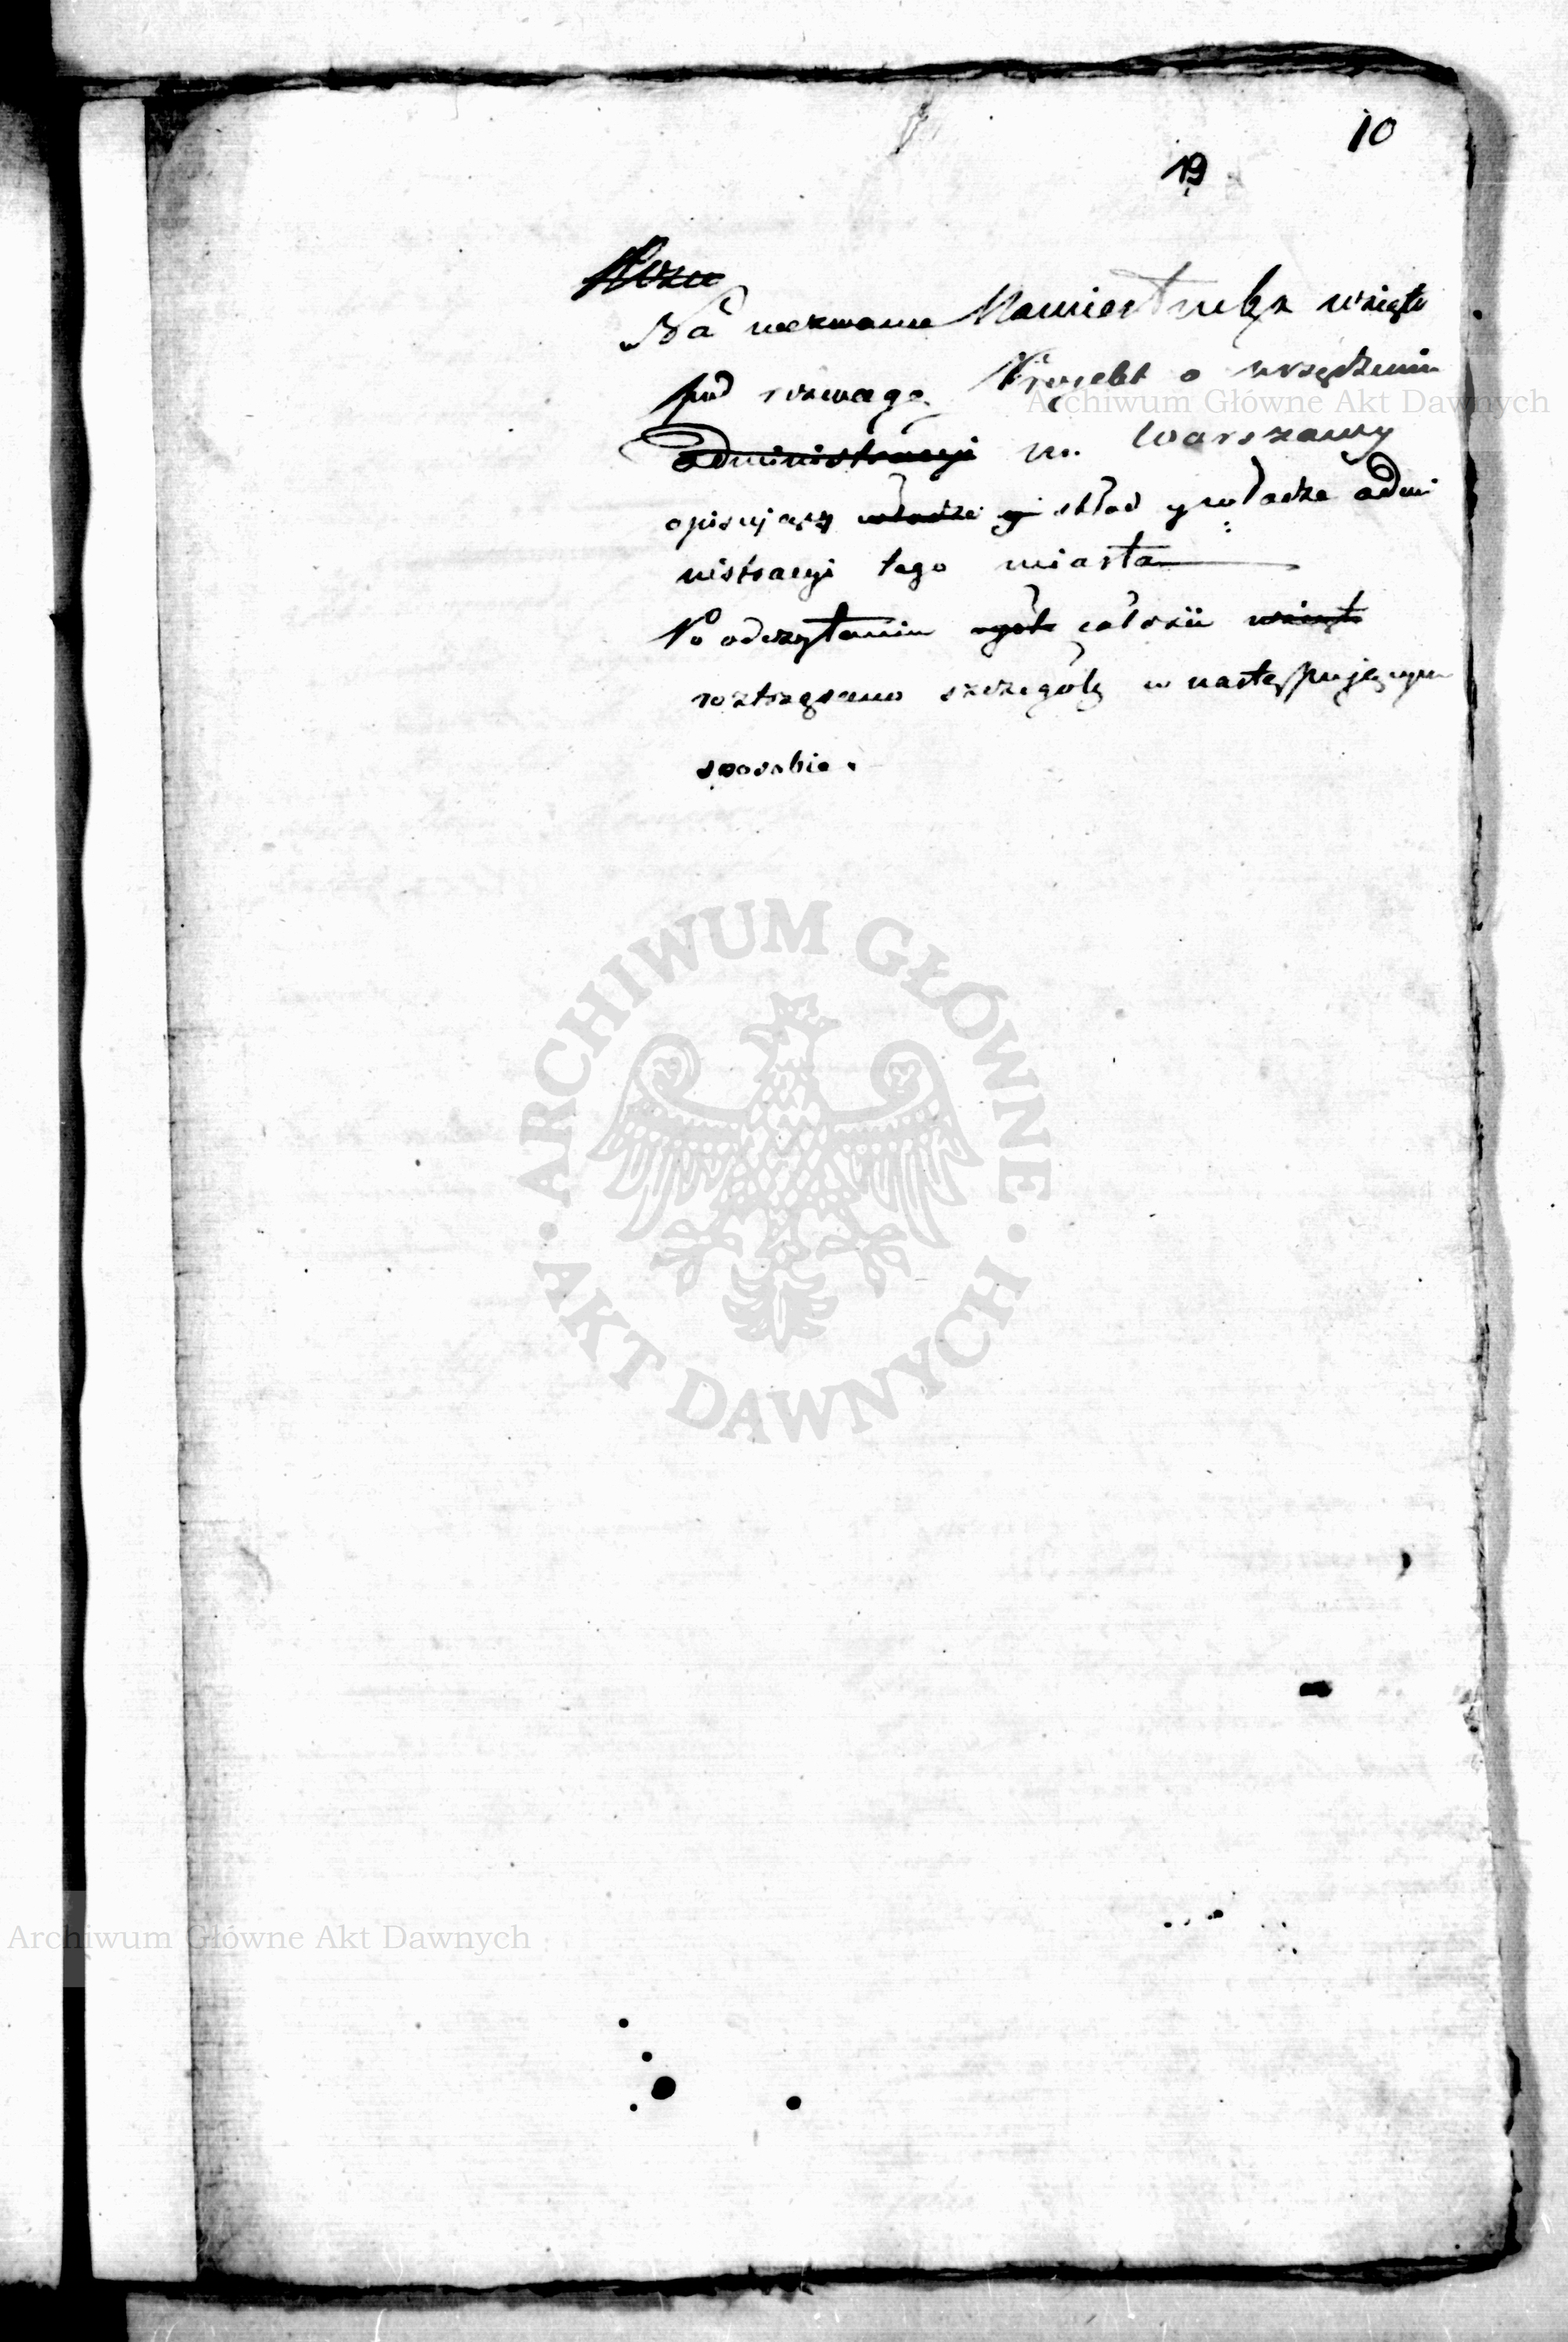 10
19
Na wezwanie Namiestnika wzięto
pod rozwagę Projekt o urządzeniu
administracyi m. Warszawy
opisujący władze y skład y władze admi
nistracyi tego miasta
Po odczytaniu całości wzięto
roztrząsano szczegóły w następującym
sposobie.
Archiwum Główne Akt Dawnych
ARCHIWUM GŁÓWNE AKT DAWNYCH
Archiwum Główne Akt Dawnych